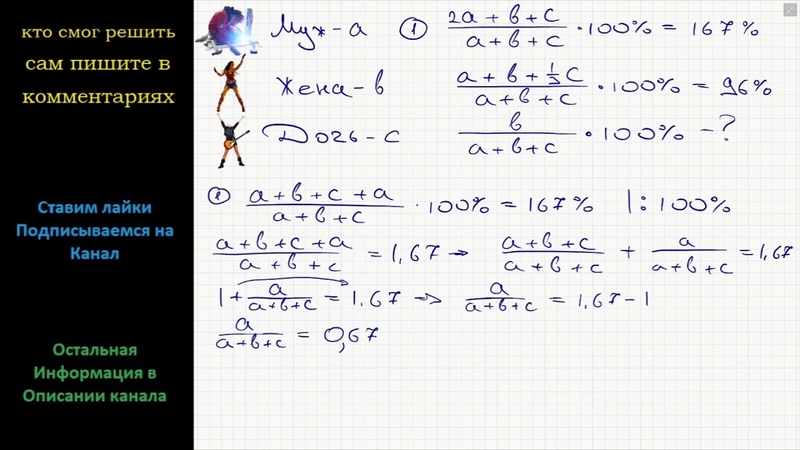 кто смог решить
сам пишите в
комментариях
Ставим лайки
Подписываемся на
Канал
Остальная
Информация в
Описании канала
Муж - а ① (2a + в + c)/(a + в + c) · 100% = 167%
Жена - в (a + в + 1/3 c)/(a + в + c) · 100% = 96%
Дочь - с в/(a + в + c) · 100% - ?
① (a + в + c + a)/(a + в + c) · 100% = 167% |: 100%
(a + в + c + a)/(a + в + c) = 1,67 → (a + в + c)/(a + в + c) + a/(a + в + c) = 1,67
1 + a/(a + в + c) = 1,67 => a/(a + в + c) = 1,67 - 1
a/(a + в + c) = 0,67